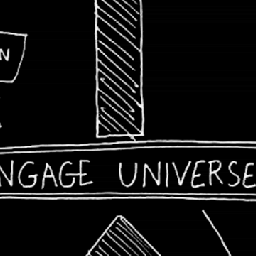 N
NGAGE UNIVERSE